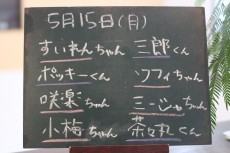 5月15日(月)
すいれんちゃん 三郎くん
ポッキーくん ソフィちゃん
咲楽ちゃん ミーシャちゃん
小梅ちゃん 茶々丸くん